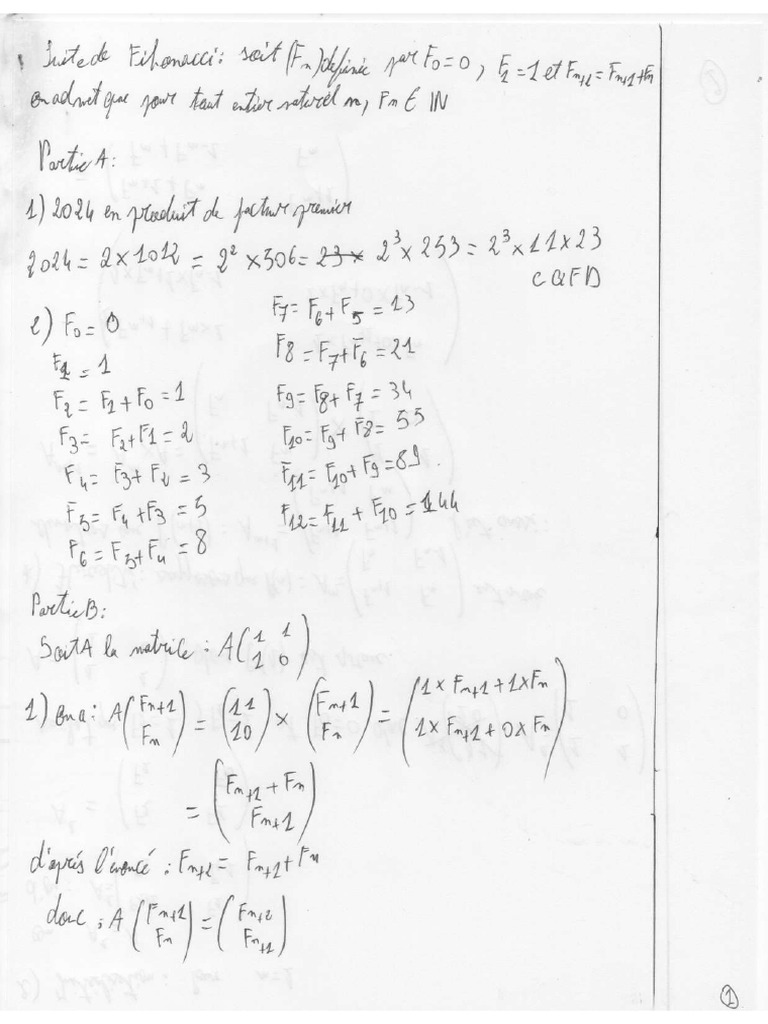 Suite de Fibonacci: soit (Fn) definie par F0=0, F1=1 et Fn+2=Fn+1+Fn
on admet que pour tout entier naturel n, Fn ∈ IN
Partie A:
1) 2024 en produit de facteur premier
2024 = 2×1012 = 2² × 506 = 2³ × 253 = 2³ × 11 × 23
CQFD
2) F0 = 0
F1 = 1
F2 = F1 + F0 = 1
F3 = F2+F1 = 2
F4 = F3 + F2 = 3
F5 = F4 + F3 = 5
F6 = F5 + F4 = 8
F7 = F6 + F5 = 13
F8 = F7 + F6 = 21
F9 = F8 + F7 = 34
F10 = F9 + F8 = 55
F11 = F10 + F9 = 89.
F12 = F11 + F10 = 144
Partie B:
Soit A la matrice: A (1 1
1 0)
1) On a: A (Fn+1
Fn) = (1 1
1 0) × (Fn+1
Fn) = (1 × Fn+1 + 1×Fn
1 × Fn+1 + 0 × Fn)
= (Fn+1 + Fn
Fn+1)
d'après l'énoncé: Fn+2 = Fn+1 + Fn
donc: A (Fn+1
Fn) = (Fn+2
Fn+1)
1